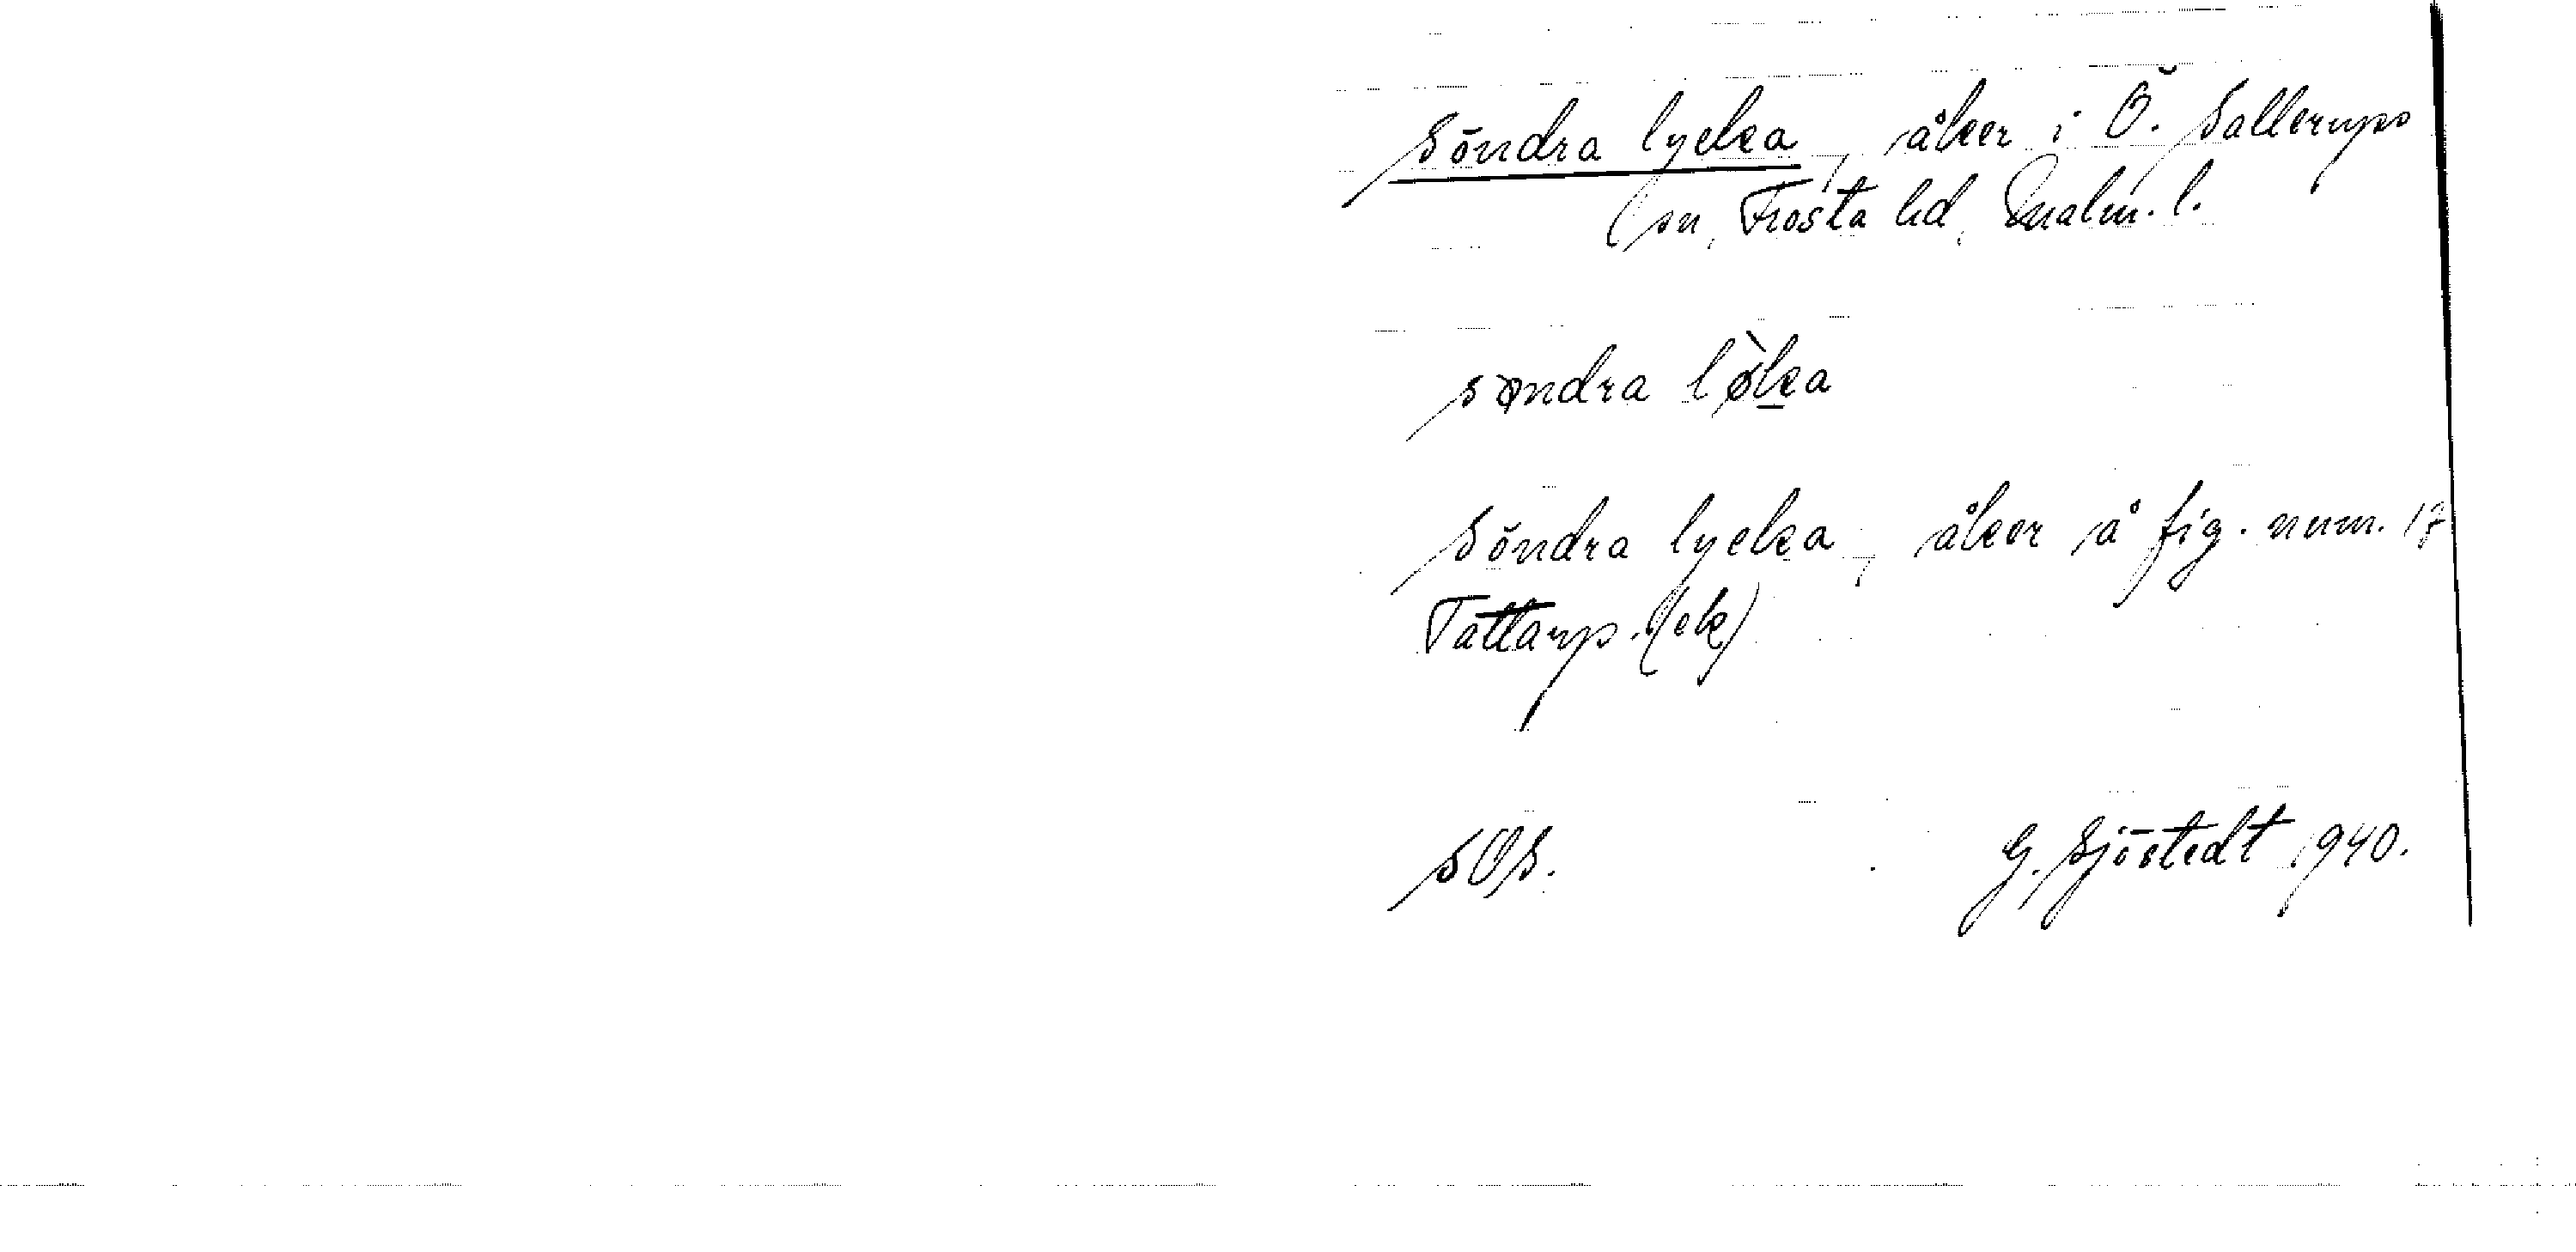 Söndra lycka, åker i Ö. Sallerups
sn, Frosta hd, Malm. l.
søndra lø̀ḵa
Söndra lycka, åker å fig. num. 17
Tattarp. (ek)
SOS. G. Sjöstedt 1940.